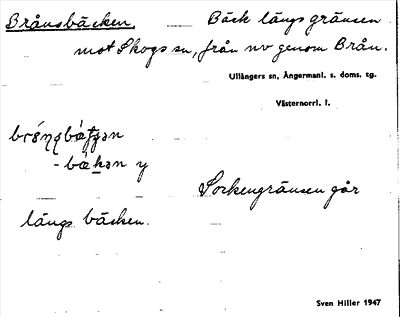 Brånsbäcken. Bäck längs gränsen
mot Skogs sn, från nv genom Brån.
Ullångers sn, Ångermanl. s. doms. tg.
Västernorrl. l.
y
Sockengränsen går
längs bäcken.
Sven Hiller 1947